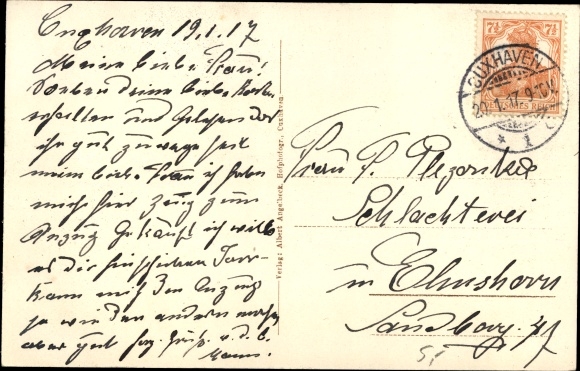 Cuxhaven 19.1.17
Meine liebe Frau!
Soeben deine liebe Karte
erhalten und gelesen das
ihr gut zuwege seit
mein liebe Frau ich habe
mich hier Zeug zum
Anzug gekauft ich will
es dir hinschicken
kann mit den Anzug
so wie den andern machen
aber gut Hrz. Gruß v. d. l.
Mann.
Verlag: Albert Angelbeck, Hofphotogr., Cuxhaven.
7½ 7½
DEUTSCHES REICH
CUXHAVEN
20.1.17. 9-10V
* 1 c
Frau P.
Schlachterei
in Elmshorn
Sandberg 47